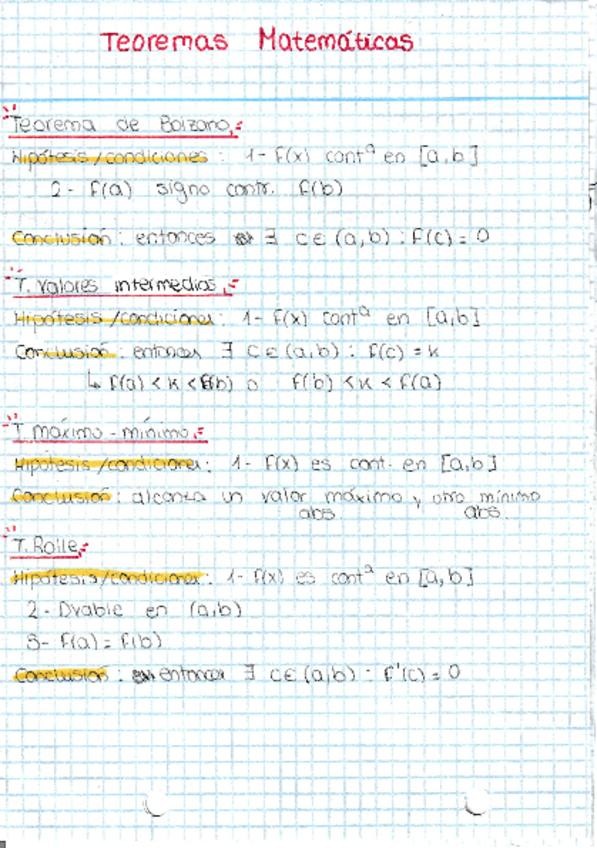 Teoremas Matemáticas
Teorema de Bolzano
Hipótesis/condiciones: 1- f(x) contª en [a,b]
2- f(a) signo contr. f(b)
Conclusión: entonces ∃ c∈(a,b): f(c)=0
T. valores intermedios
Hipótesis/condiciones: 1- f(x) contª en [a,b]
Conclusión: entonces ∃ c∈(a,b): f(c)=k
↳ f(a)<k<f(b) o f(b)<k<f(a)
T máximo-mínimo
Hipótesis/condiciones: 1- f(x) es cont. en [a,b]
Conclusión: alcanza un valor máximo y otro mínimo
abs. abs.
T. Rolle
Hipótesis/condiciones: 1- f(x) es contª en [a,b]
2- Dvable en (a,b)
3- f(a)=f(b)
Conclusión: entonces ∃ c∈(a,b): f'(c)=0